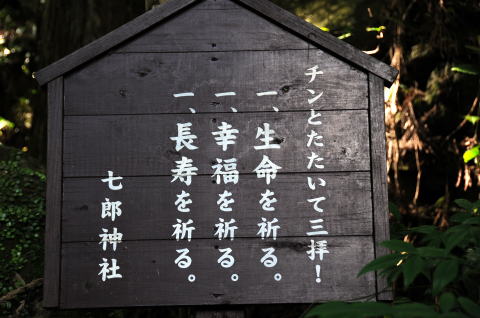 チンとたたいて三拝!
一、生命を祈る。
一、幸福を祈る。
一、長寿を祈る。
七郎神社